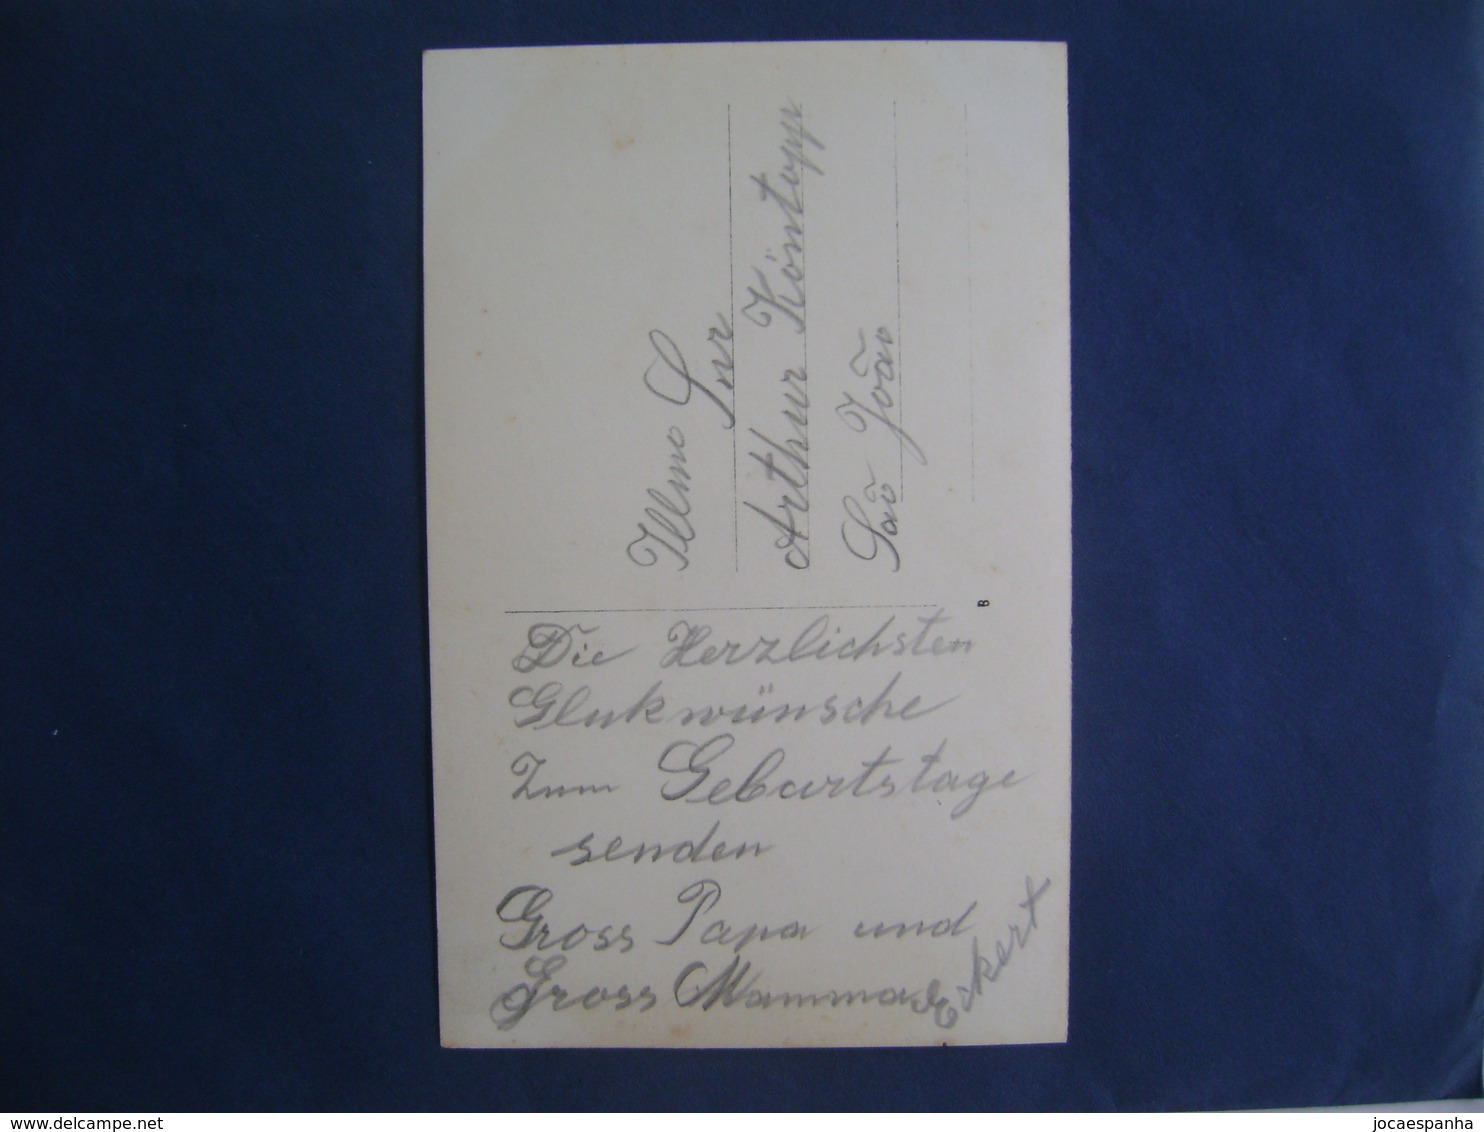 Illmo Snr
Arthur Köntopp
São João
B
Die Herzlichsten
Glukwünsche
Zum Geburtstage
senden
Gross Papa und
Gross Mamma Eckert
www.delcampe.net
jocaespanha